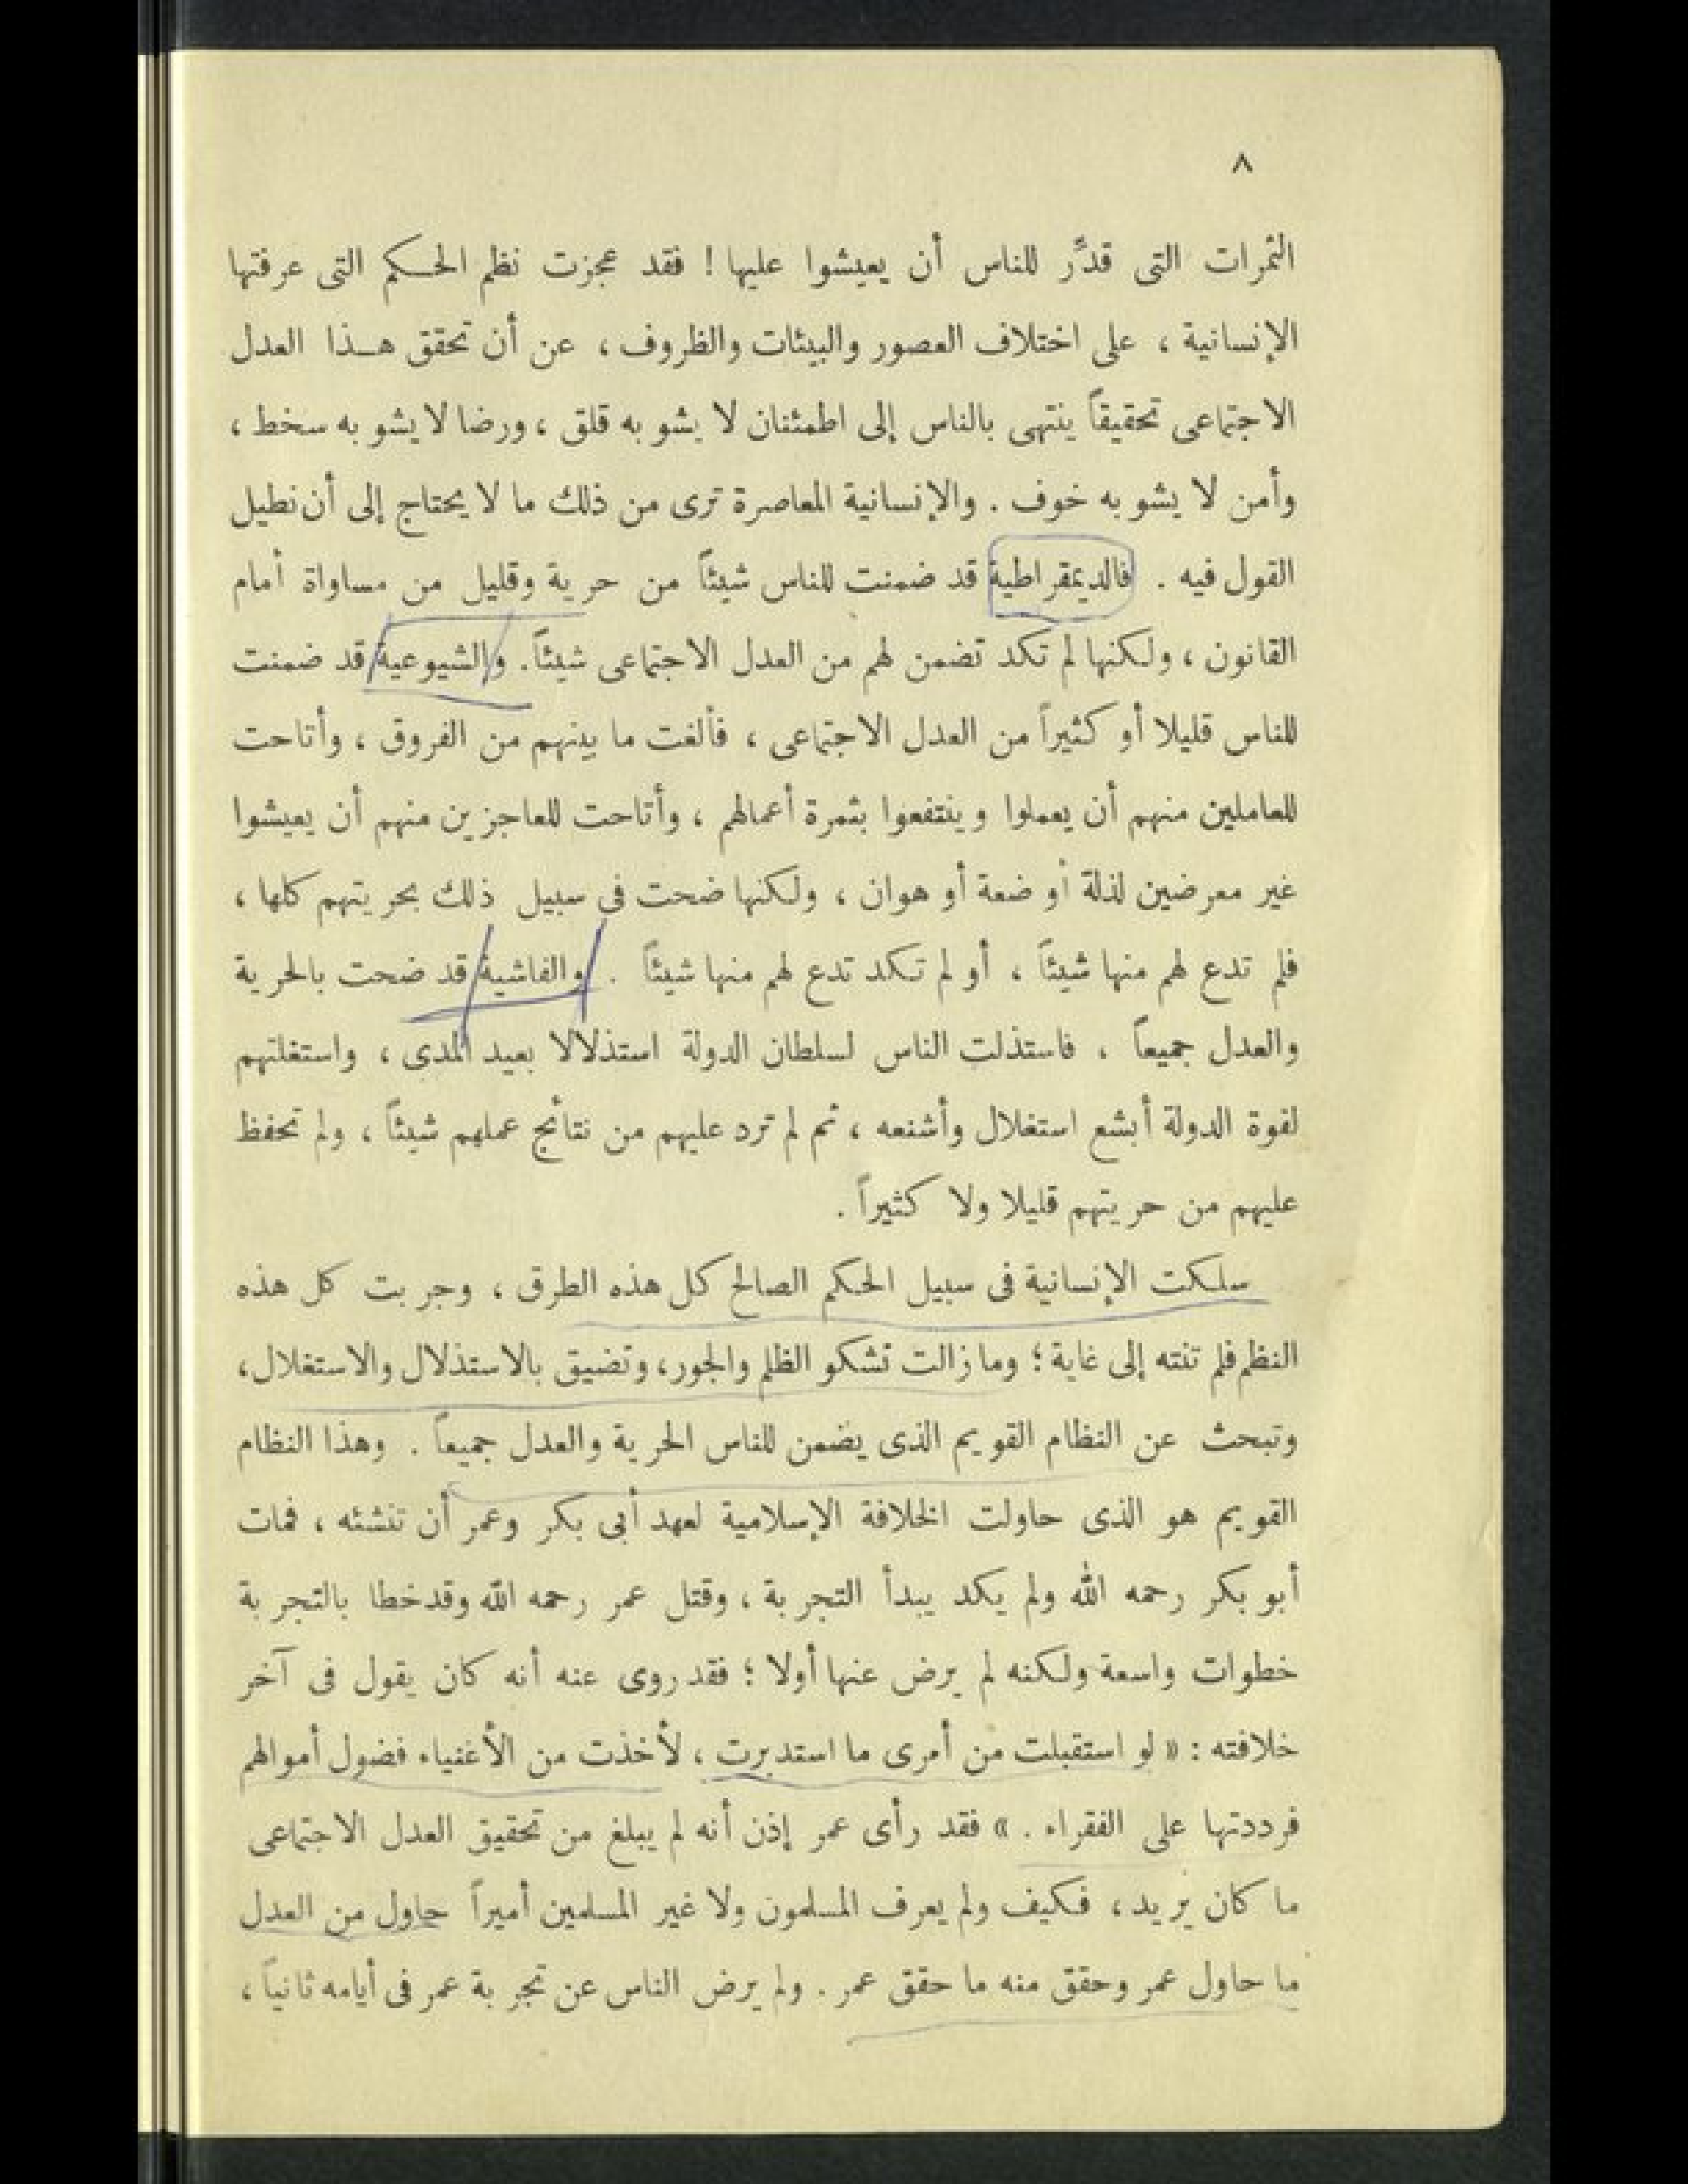 ٨
الثمرات التى قدَّر للناس أن يعيشوا عليها ! فقد عجزت نظم الحكم التى عرفتها
الإنسانية ، على اختلاف العصور والبيئات والظروف ، عن أن تحقق هذا العدل
الاجتماعى تحقيقاً ينتهى بالناس إلى اطمئنان لا يشوبه قلق ، ورضا لا يشوبه سخط ،
وأمن لا يشوبه خوف . والإنسانية المعاصرة ترى من ذلك ما لا يحتاج إلى أن نطيل
القول فيه . فالديمقراطية قد ضمنت للناس شيئاً من حرية وقليل من مساواة أمام
القانون ، ولكنها لم تكد تضمن لهم من العدل الاجتماعى شيئاً . والشيوعية قد ضمنت
للناس قليلا أو كثيراً من العدل الاجتماعى ، فألغت ما بينهم من الفروق ، وأتاحت
للعاملين منهم أن يعملوا وينتفعوا بثمرة أعمالهم ، وأتاحت للعاجزين منهم أن يعيشوا
غير معرضين لذلة أو ضعة أو هوان ، ولكنها ضحت فى سبيل ذلك بحريتهم كلها ،
فلم تدع لهم منها شيئاً ، أو لم تكد تدع لهم منها شيئاً . والفاشية قد ضحت بالحرية
والعدل جميعاً ، فاستذلت الناس لسلطان الدولة استذلالا بعيد المدى ، واستغلتهم
لقوة الدولة أبشع استغلال وأشنعه ، ثم لم ترد عليهم من نتائج عملهم شيئاً ، ولم تحفظ
عليهم من حريتهم قليلا ولا كثيراً .
سلكت الإنسانية فى سبيل الحكم الصالح كل هذه الطرق ، وجربت كل هذه
النظم فلم تنته إلى غاية ؛ وما زالت تشكو الظلم والجور ، وتضيق بالاستذلال والاستغلال ،
وتبحث عن النظام القويم الذى يضمن للناس الحرية والعدل جميعاً . وهذا النظام
القويم هو الذى حاولت الخلافة الإسلامية لعهد أبى بكر وعمر أن تنشئه ، فمات
أبو بكر رحمه الله ولم يكد يبدأ التجربة ، وقتل عمر رحمه الله وقد خطا بالتجربة
خطوات واسعة ولكنه لم يرض عنها أولا ؛ فقد روى عنه أنه كان يقول فى آخر
خلافته : « لو استقبلت من أمرى ما استدبرت ، لأخذت من الأغنياء فضول أموالهم
فرددتها على الفقراء . » فقد رأى عمر إذن أنه لم يبلغ من تحقيق العدل الاجتماعى
ما كان يريد ، فكيف ولم يعرف المسلمون ولا غير المسلمين أميراً حاول من العدل
ما حاول عمر وحقق منه ما حقق عمر . ولم يرض الناس عن تجربة عمر فى أيامه ثانياً ،